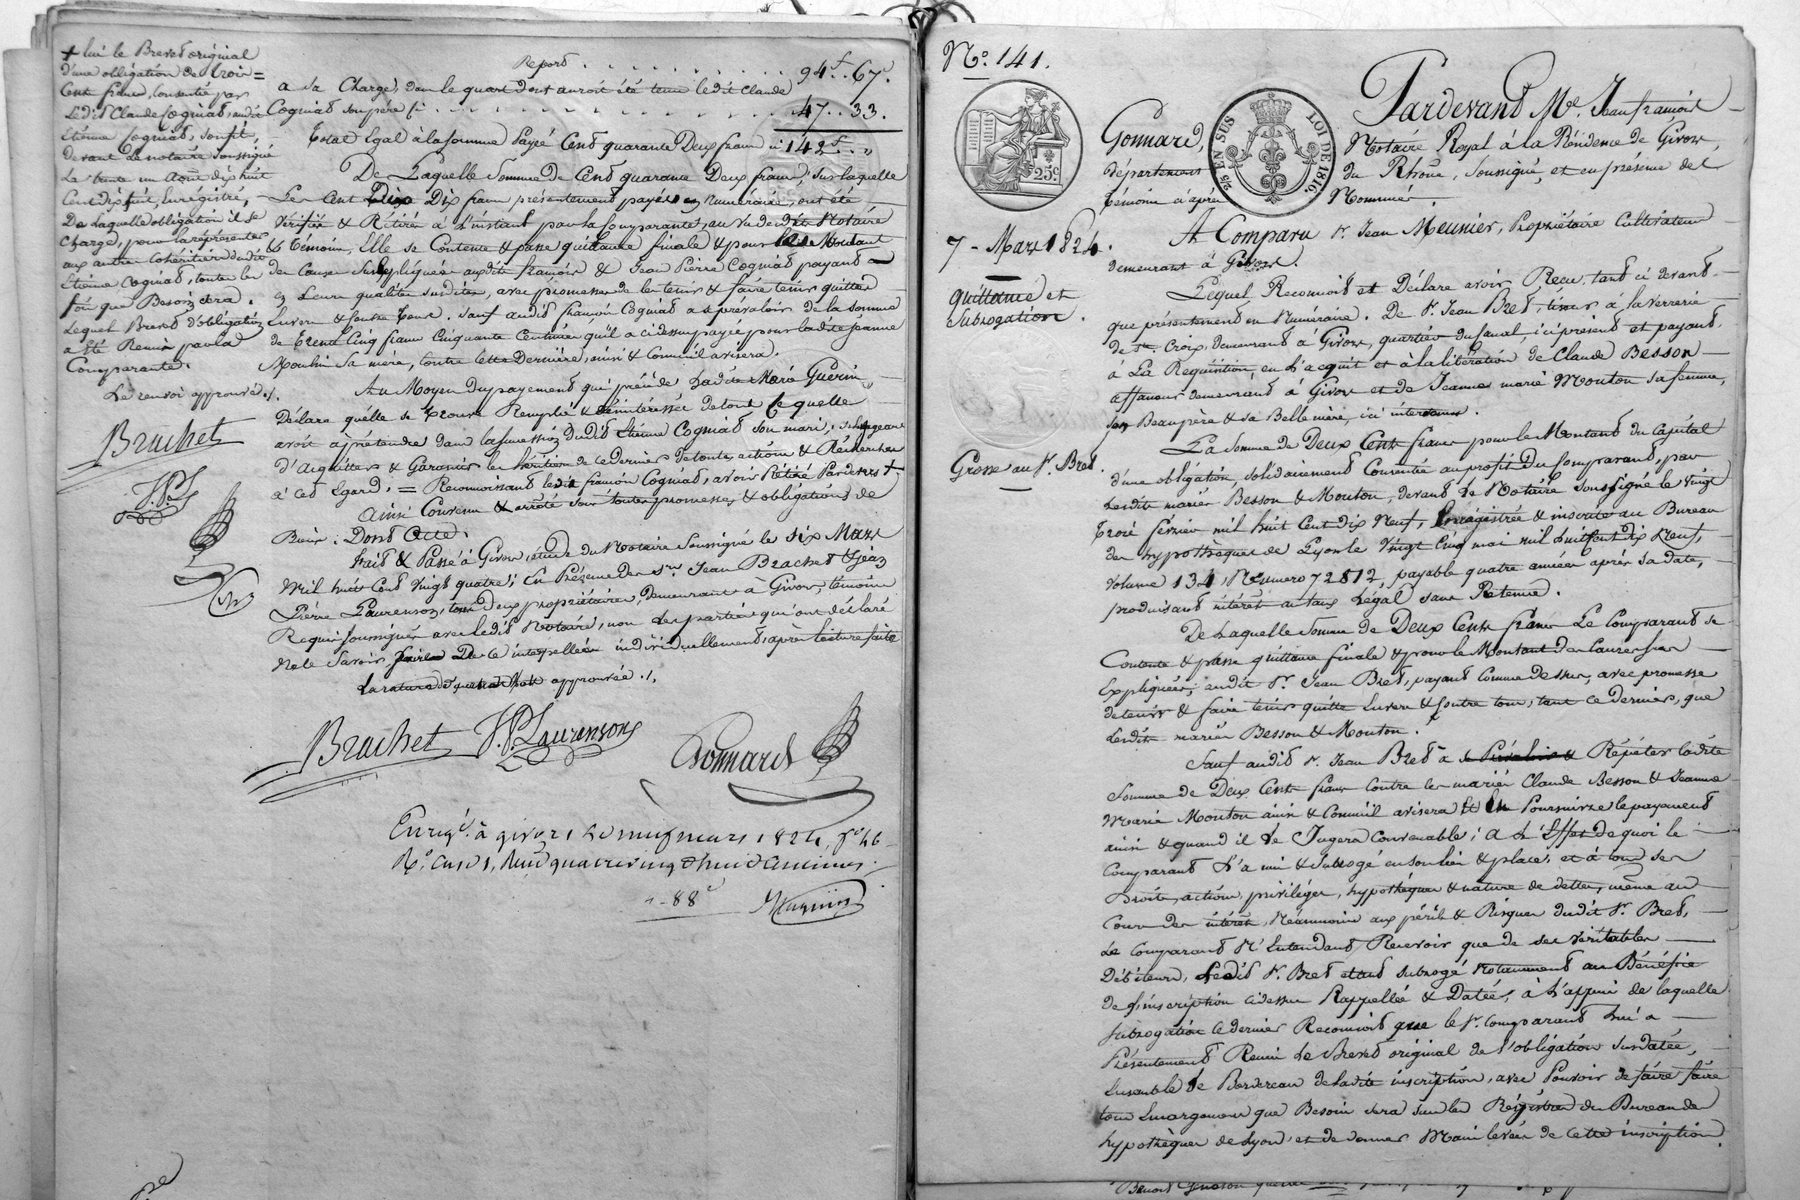 + lui le Brevet original
d'une obligation de trois =
Cent francs, Consentie par
Ledit Claude Cogniat, audit
Etienne Cogniat, son fils,
devant le notaire soussigné
Le trente un Août dix huit
Cent dix sept, Enregistré,
De laquelle obligation il se
Charge, pour la représenter
aux autres Cohéritiers dudit
Etienne Cogniat, toutes les
fois que Besoin sera.
Lequel Brevet d'obligation
a été Remis par la
Comparante.
Le renvoi approuvé ./.
Brachet
J.P.L
Report . . . . . . . . 94 f. 67 c.
a sa Charge, dans le quart dont auroit été tenu ledit Claude
Cogniat son père ci . . . . . . . . 47 .. 33.
Total Egal à la somme Payée Cent quarante Deux francs ci 142 f. .. "
De Laquelle Somme de Cent quarante Deux francs, sur laquelle
Les Cent Dix francs présentement payés en numéraire, ont été
Vérifiés & Retirés à l'instant par la Comparante, au vu dudit Notaire
& témoins, Elle se Contente & passe quittance finale & pour le Montant
des Causes Susexpliquées auxdits françois & Jean Pierre Cogniat payant
en Leurs qualités susdites, avec promesse de les tenir & faire tenir quittes
Envers & Contre tous. Sauf audit françois Cogniat a se prévaloir de la somme
de trente Cinq francs Cinquante Centimes qu'il a cidessus payée pour ladite Jeanne
Moulin Sa mère, Contre cette Dernière, ainsi & Comme il avisera.
Au Moyen du payement qui précède Ladite Marie Guérin
Déclare quelle se trouve Remplie & désintéressée de tout Ce quelle
avoit à prétendre dans la succession dudit Etienne Cogniat son mari, s'engageant
d'Acquitter & Garantir les héritiers de ce dernier de toutes actions & Recherches
à Cet Egard, = Reconnoissant ledit françois Cogniat, avoir Retiré Pardevers +
Ainsi Convenu & arrêté sous toutes promesses, & obligations de
Biens: Dont Acte.
Fait & Passé à Givors, étude du Notaire Soussigné le six Mars
Mil huit Cent Vingt quatre; En Présence des Srs Jean Brachet & Jean
Pierre Laurenson, tous deux propriétaires, demeurants à Givors, témoins
Requis soussignés avec ledit Notaire, non les parties qui ont déclaré
ne le Savoir faire De ce interpellées individuellement, après lecture faite
La rature de quatre mots approuvée ./.
Brachet J.P. Laurenson Gonnard
Enregé. à givors le neuf mars 1824, fo. 46
Ro. Case 1, Reçu quatre vingt & huit Centimes.
" - 88 c
No. 141.
25c
25 EN SUS
LOI DE 1816
7 - Mars 1824.
quittance et
Subrogation.
Grosse au Sr. Bret.
Pardevant Me. Jean françois
Gonnard, Notaire Royal à la Résidence de Givors,
département du Rhône, Soussigné, et en présence des
témoins ci après Nommés.
A Comparu Sr. Jean Meunier, Propriétaire Cultivateur
demeurant à Givors.
Lequel Reconnoit et Déclare avoir Reçu, tant ci devant
que présentement en Numéraire. De Sr. Jean Bret, tiseur à la verrerie
de Ste. Croix, demeurant à Givors, quartier du Canal, ici présent et payant,
a La Réquisition, en l'acquit et à la libération de Claude Besson
affaneur demeurant à Givors et de Jeanne marie Mouton sa femme,
ses Beaupère & sa Bellemère, ici intervenus.
La Somme de Deux Cents francs pour le Montant du Capital
d'une obligation, solidairement Consentie au profit du Comparant, par
Lesdits mariés Besson & Mouton, devant le Notaire soussigné le Vingt
trois février mil huit Cent dix Neuf, Enrégistrée & inscrite au Bureau
des hypothèques de Lyon le Vingt Cinq mai mil huit Cent dix Neuf,
Volume 134, Numero 72812, payable quatre années après sa date,
produisant intérêt au taux Légal sans Retenue.
De Laquelle Somme de Deux Cents francs Le Comparant se
Contente & passe quittance finale & pour le Montant des Causes sus
Expliquées, audit Sr. Jean Bret, payant Comme dessus, avec promesse
de tenir & faire tenir quitte Envers & Contre tous, tant ce dernier, que
Lesdits mariés Besson & Mouton.
Sauf audit Sr. Jean Bret à se Prévaloir & Répéter ladite
Somme de Deux Cents francs Contre les mariés Claude Besson & Jeanne
Marie Mouton ainsi & Comme il avisera & En Poursuivre le payement
ainsi & quand il le Jugera Convenable; A L'Effet de quoi le
Comparant L'a mis & Subrogé en son lieu & place, et à tous ses
Droits, actions, privilèges, hypothèques & nature de dettes, même au
Cours des intérêts, Néanmoins aux périls & Risques dudit Sr. Bret,
Le Comparant N'Entendant Recevoir que de ses véritables
Débiteurs, Ledit Sr. Bret étant subrogé notamment au Bénéfice
de L'inscription cidessus Rappellée & Datée, à L'appui de laquelle
Subrogation Ce dernier Reconnoit que le Sr. Comparant lui a
Présentement Remis Le Brevet original de l'obligation susdatée,
Ensemble le Bordereau de ladite inscription, avec Pouvoir de faire faire
tous Emargemens que Besoin sera sur les Régistres du Bureau des
hypothèques de Lyon, et de donner Main levée de Cette inscription.